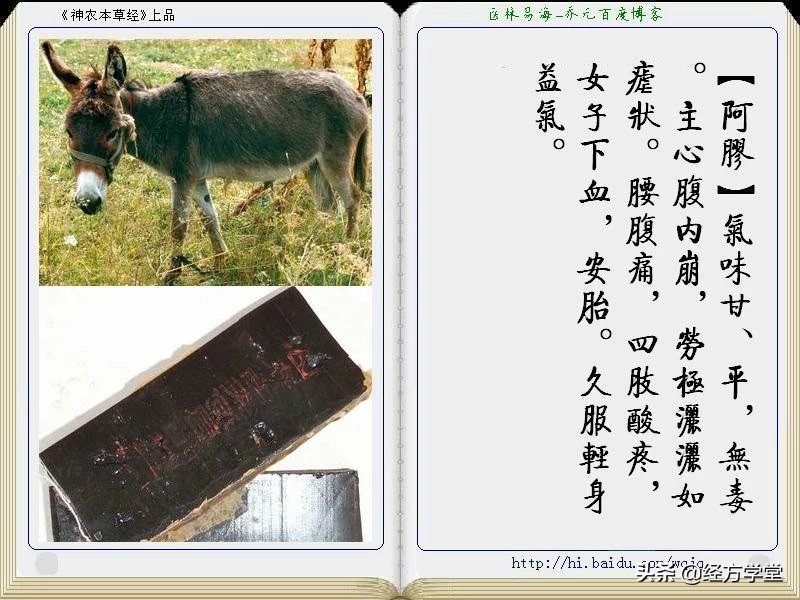 《神农本草经》上品
医林易海_乔元百度博客
【阿膠】氣味甘、平，無毒
。主心腹内崩，勞極灑灑如
瘧狀。腰腹痛，四肢酸疼，
女子下血，安胎。久服輕身
益氣。
http://hi.baidu.com/
头条 @经方学堂